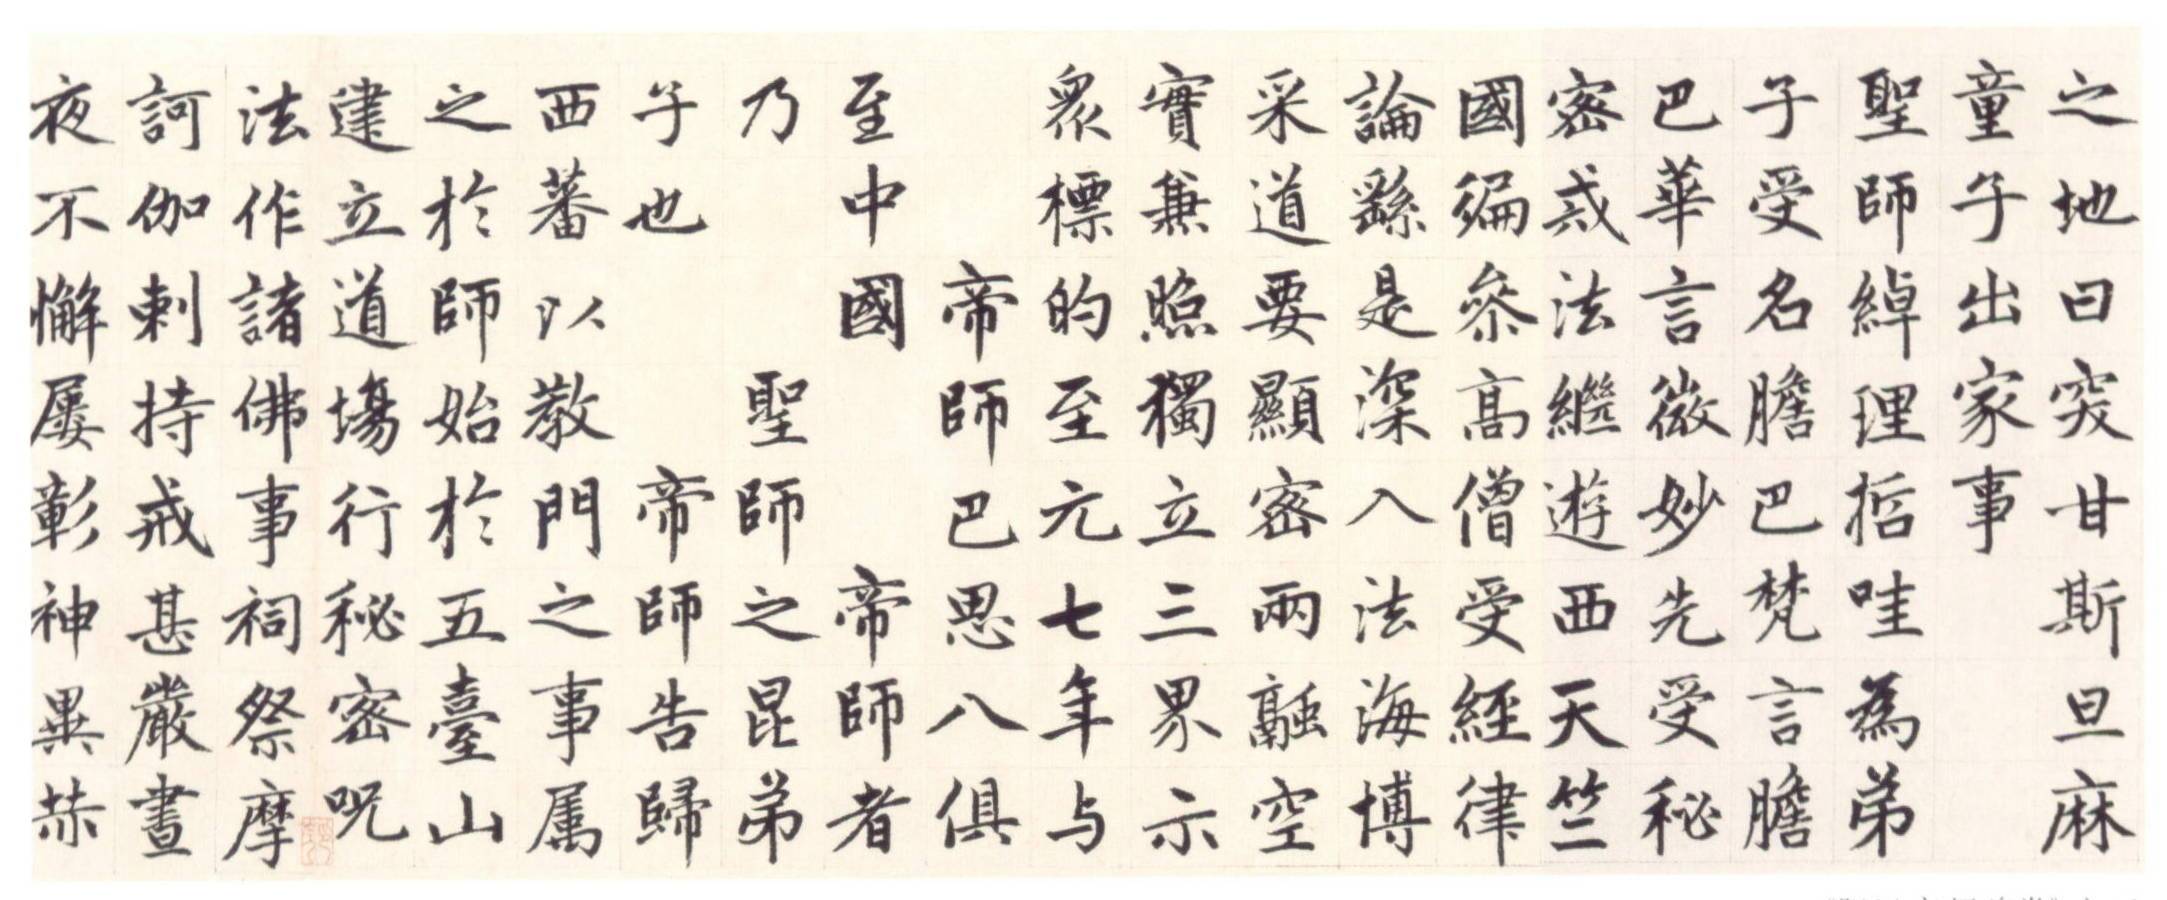 之地曰突甘斯旦麻
童子出家事
聖師綽理哲哇為弟
子受名膽巴梵言膽
巴華言微妙先受秘
密戒法繼遊西天竺
國徧參高僧受經律
論繇是深入法海博
采道要顯密兩融空
實兼照獨立三界示
衆標的至元七年与
帝師巴思八俱
至中國 帝師者
乃 聖師之昆弟
子也 帝師告歸
西蕃以教門之事属
之於師始於五臺山
建立道場行秘密呪
法作諸佛事祠祭摩
訶伽剌持戒甚嚴晝
夜不懈屢彰神異赫